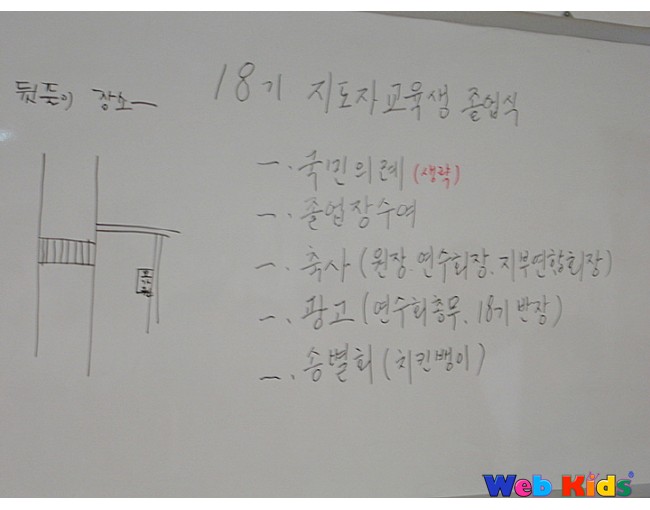 18기 지도자교육생 졸업식
뒷풀이 장소
一. 국민의례 (생략)
一. 졸업장수여
一. 축사 (원장. 연수회장. 지부연합회장)
一. 광고 (연수회총무, 18기반장)
一. 송별회 (치킨뱅이)
Web Kids